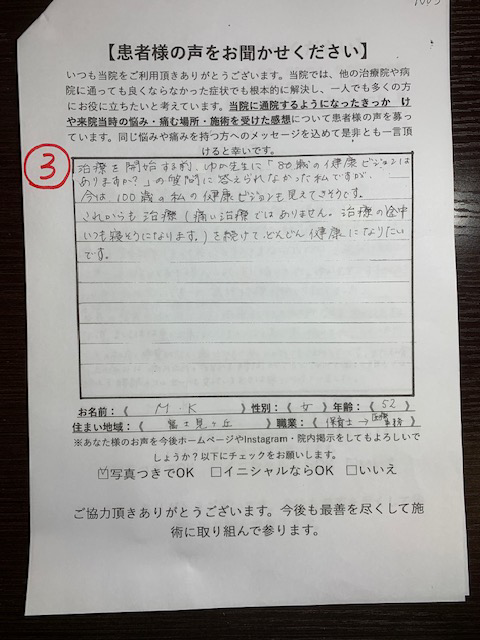 【患者様の声をお聞かせください】
いつも当院をご利用頂きありがとうございます。当院では、他の治療院や病
院に通っても良くならなかった症状でも根本的に解決し、一人でも多くの方
にお役に立ちたいと考えています。当院に通院するようになったきっか け
や来院当時の悩み・痛む場所・施術を受けた感想について患者様の声を募っ
ています。同じ悩みや痛みを持つ方へのメッセージを込めて是非とも一言頂
けると幸いです。
3
治療を開始する前、ゆか先生に「80歳の健康ビジョンは
ありますか?」の質問に答えられなかった私ですが、
今は100歳の私の健康ビジョンも見えてきそうです。
これからも治療(痛い治療ではありません。治療の途中
いつも寝そうになります。)を続けて、どんどん健康になりたい
です。
お名前:《 M・K 》性別:《 女 》年齢:《 52 》
住まい地域:《 富士見ヶ丘 》職業:《 保育士→医療事務 》
※あなた様のお声を今後ホームページやInstagram・院内掲示をしてもよろしいで
しょうか?以下にチェックをお願いします。
☑写真つきでOK □イニシャルならOK □いいえ
ご協力頂きありがとうございます。今後も最善を尽くして施
術に取り組んで参ります。